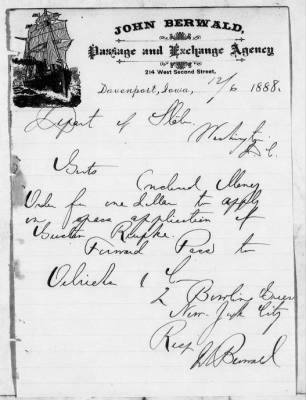 JOHN BERWALD,
Passage and Exchange Agency
214 West Second Street,
Davenport, Iowa, 12/6 1888.
Depart of State
Washington
D.C.
Gents
Inclosed Money
Order for one dollar to apply
on application of
Gustav
Forward Pass to
Oelrichs & Co
2 Bowling Green
New York City
Resp
Berwald